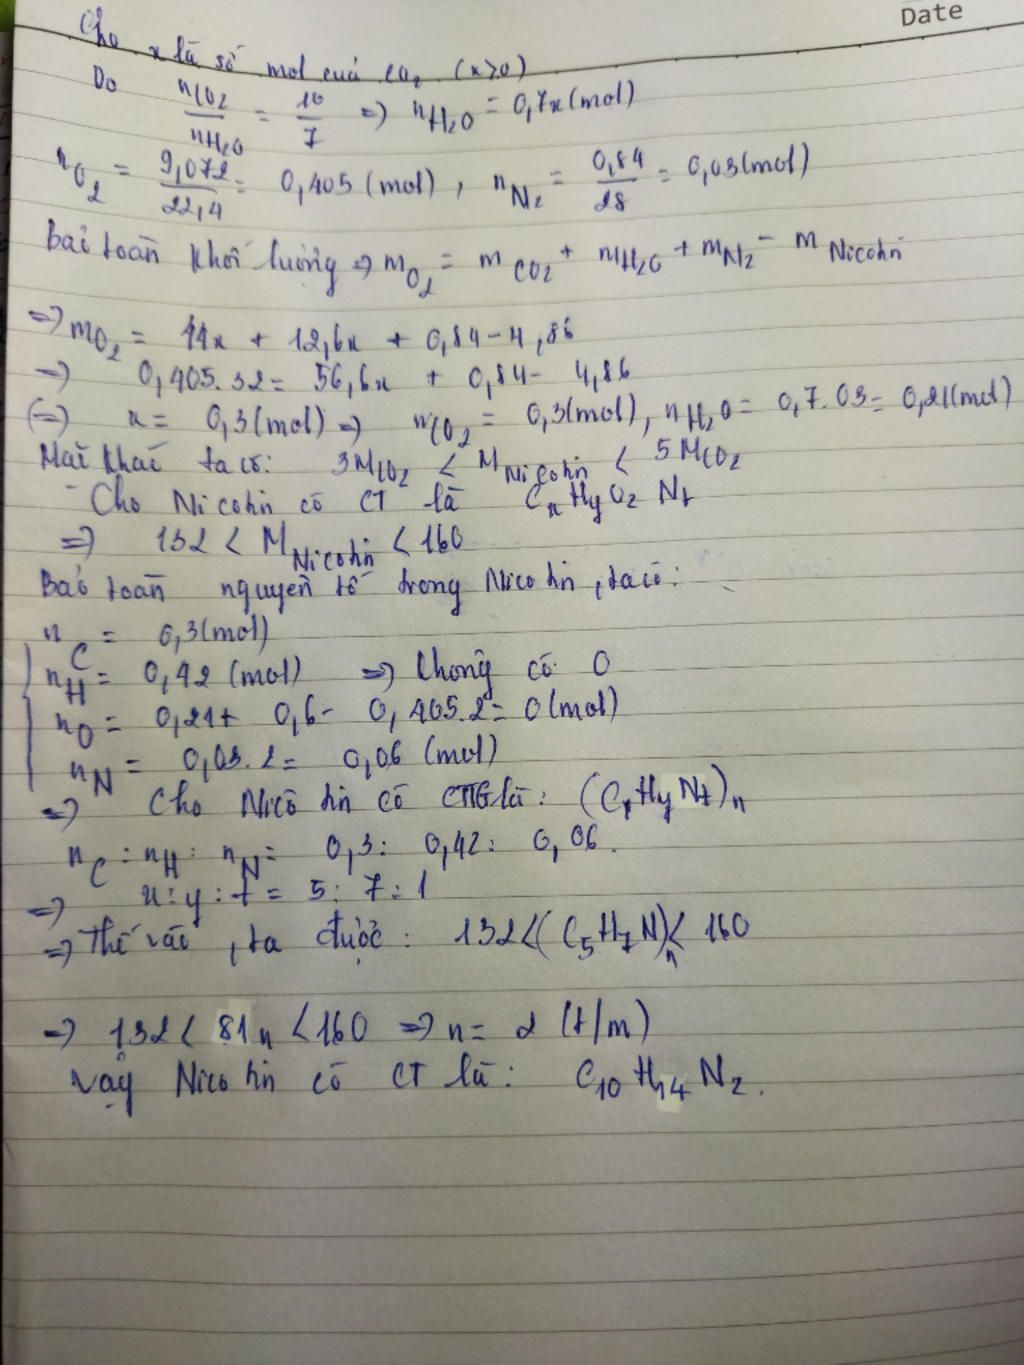 Date
Cho x là số mol của CO₂ (x>0)
Do nCO₂/nH₂O = 10/7 => nH₂O = 0,7x (mol)
nO₂ = 9,072/22,4 = 0,405 (mol), nN₂ = 0,84/28 = 0,03 (mol)
Bảo toàn khối lượng => mO₂ = mCO₂ + mH₂O + mN₂ - mNicotin
=> mO₂ = 44x + 12,6x + 0,84 - 4,86
=> 0,405.32 = 56,6x + 0,84 - 4,86
(=) x = 0,3 (mol) => nCO₂ = 0,3 (mol), nH₂O = 0,7.03 = 0,21 (mol)
Mặt khác ta có: 3MCO₂ < MNicotin < 5MCO₂
- Cho Nicotin có CT là CxHyOzNt
=> 132 < MNicotin < 160
Bảo toàn nguyên tố trong Nicotin, ta có:
nC = 0,3 (mol)
nH = 0,42 (mol) => không có O
nO = 0,21 + 0,6 - 0,405.2 = 0 (mol)
nN = 0,03.2 = 0,06 (mol)
=> Cho Nicotin có CTĐG là: (CxHyNt)n
nC : nH : nN = 0,3 : 0,42 : 0,06.
=> x : y : t = 5 : 7 : 1
=> Thế vào, ta được: 132 < (C₅H₇N)n < 160
=> 132 < 81n < 160 => n = 2 (t/m)
Vậy Nicotin có CT là: C₁₀H₁₄N₂.